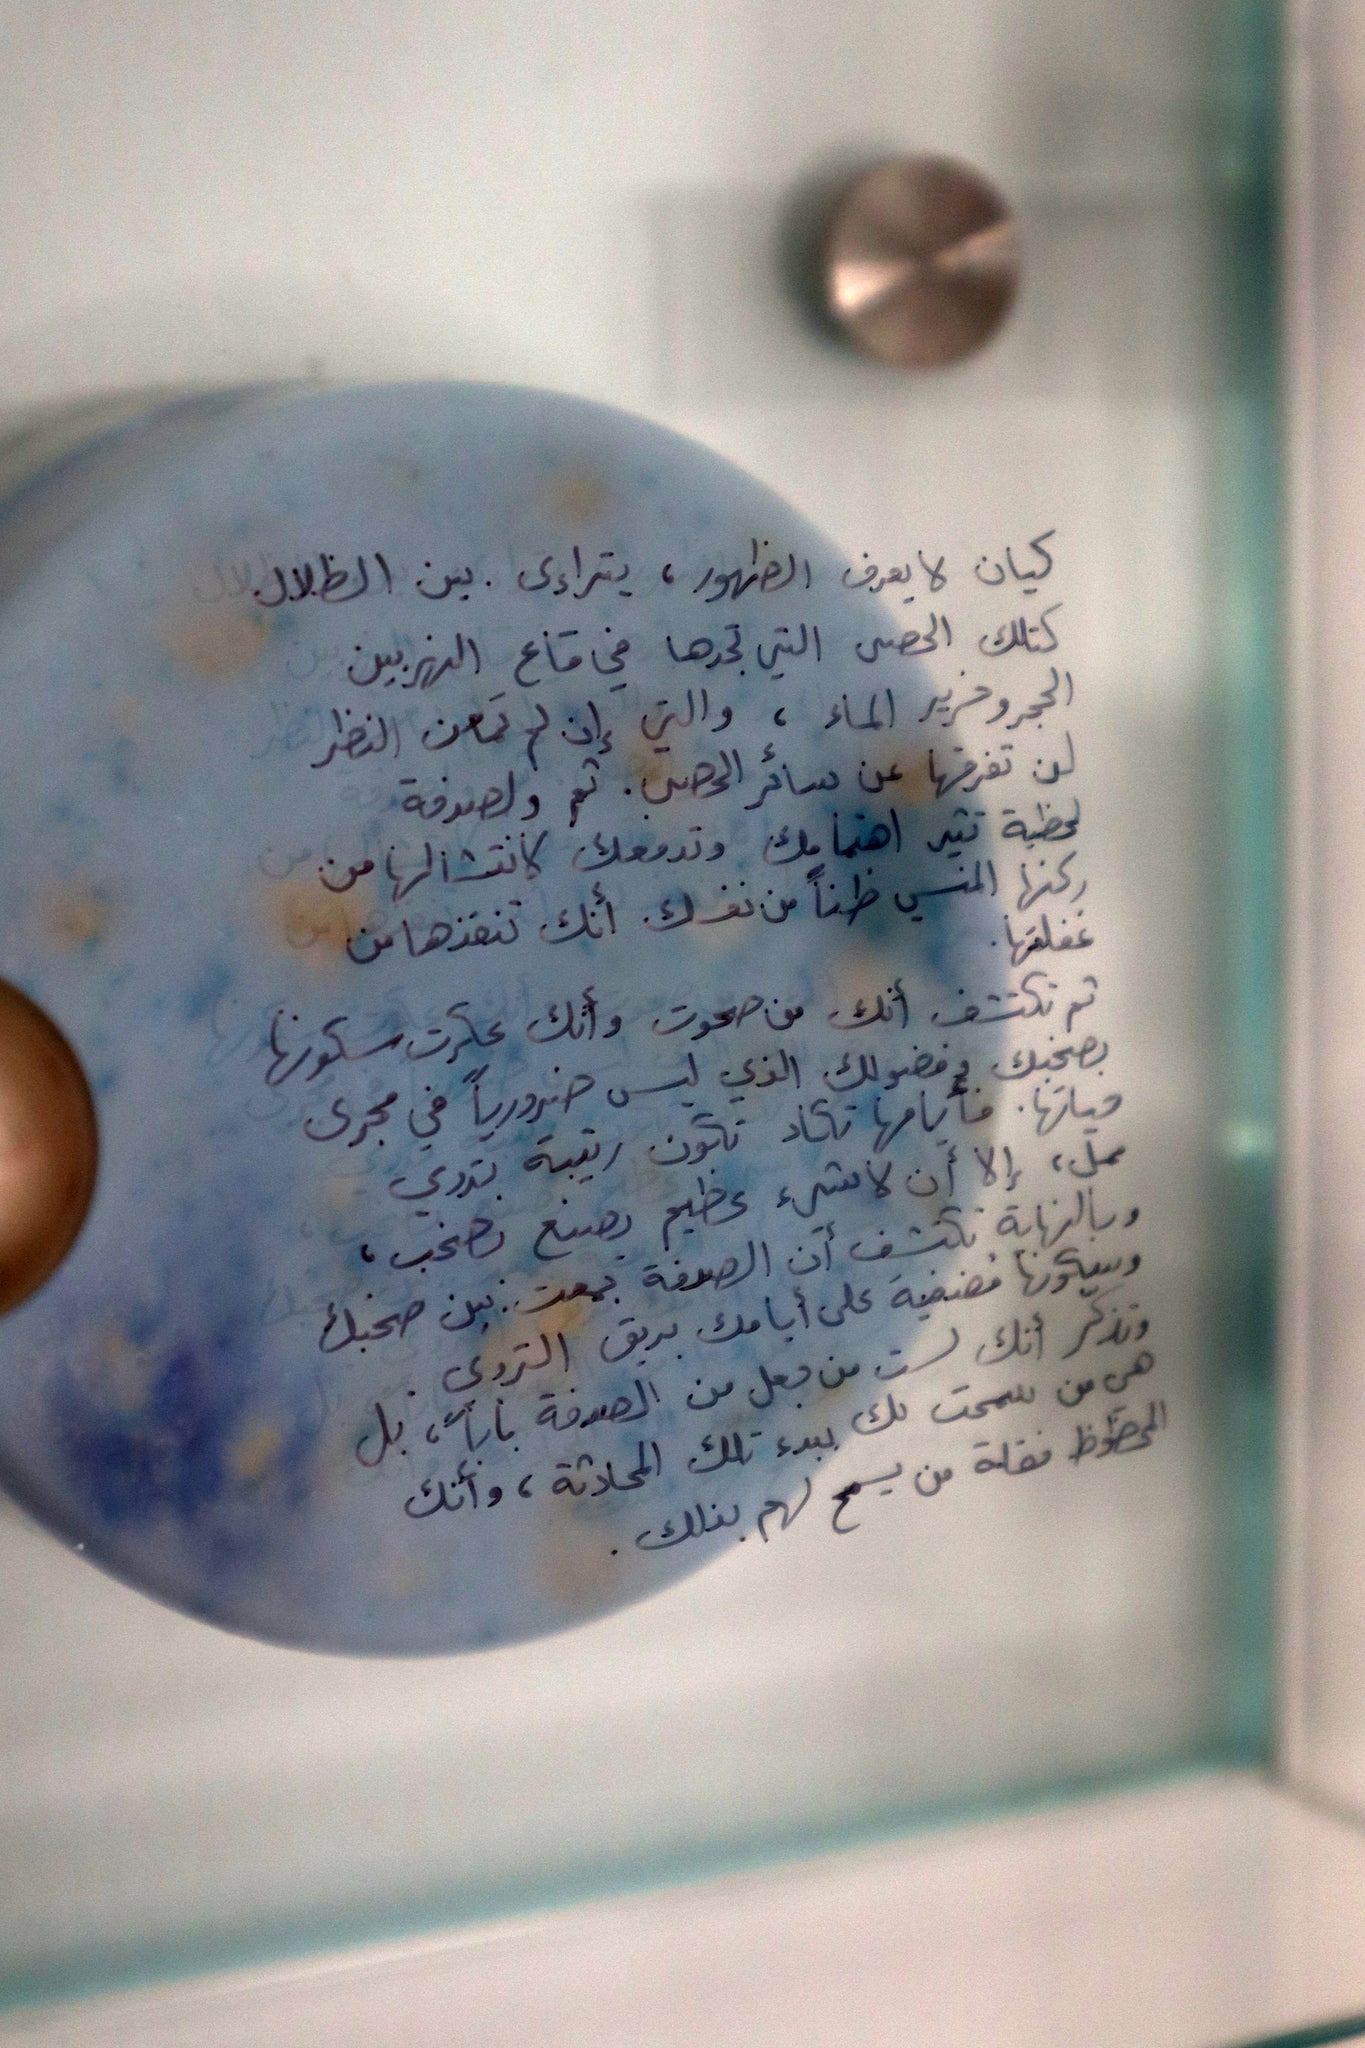 كيان لا يعرف الظهور، يتراءى بين الظلال
كتلك الحصى التي تجدها في قاع النهر بين
الحجر وخرير الماء، والتي إن لم تمعن النظر
لن تفرقها عن سائر الحصى. ثم ولصدفة
لحظية تثير اهتمامك وتدفعك لانتشالها من
ركنها المنسي ظناً من نفسك أنك تنقذها من
غفلتها.
ثم تكتشف أنك من صحوت وأنك عكرت سكونها
بصخبك وفضولك الذي ليس ضرورياً في مجرى
حياتها. فأيامها تكاد تكون رتيبة بتروي
ممل، إلا أن لا شيء عظيم يصنع بصخب،
وبالنهاية تكتشف أن الصدفة جمعت بين صخبك
وسكونها مضفية على أيامك بريق التروي.
وتذكر أنك لست من جعل من الصدفة باباً، بل
هي من سمحت لك ببدء تلك المحادثة، وأنك
المحظوظ فقلة من يسمح لهم بذلك.